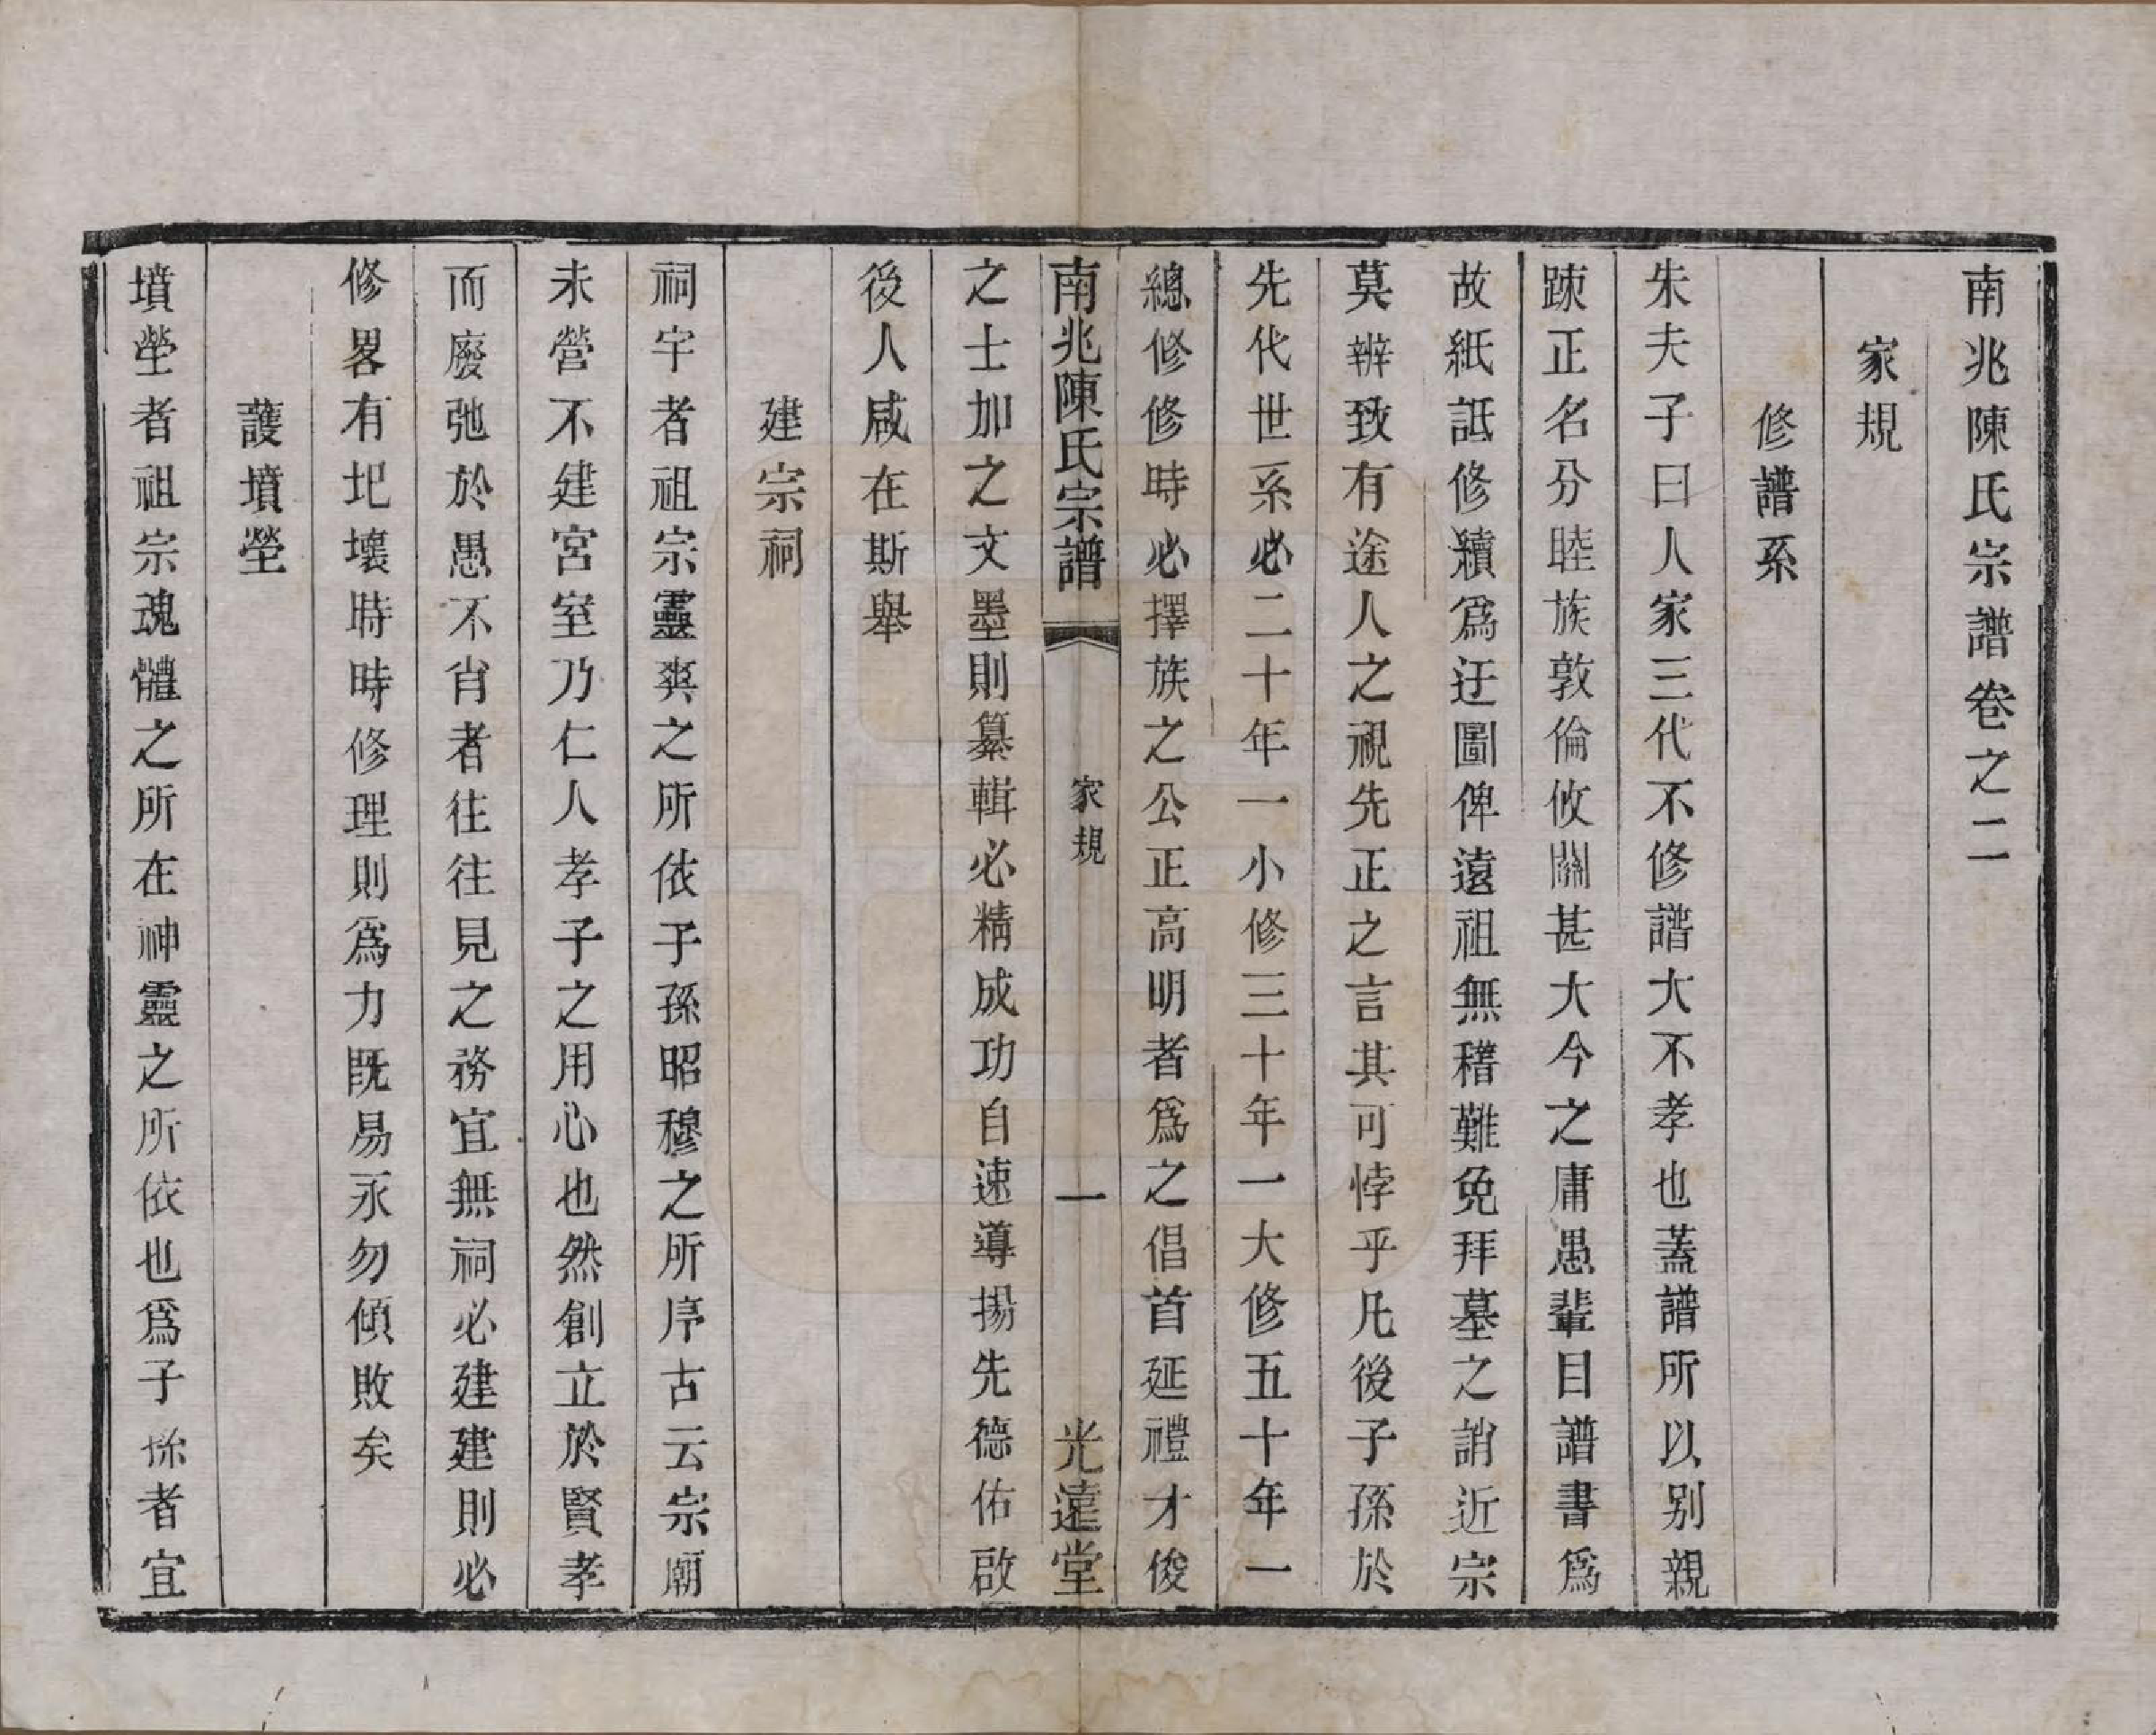 南兆陳氏宗譜卷之二
家規
修譜系
朱夫子曰人家三代不修譜大不孝也蓋譜所以别親
踈正名分睦族敦倫攸關甚大今之庸愚輩目譜書爲
故紙詆修續爲迂圖俾遠祖無稽難免拜墓之誚近宗
莫辨致有途人之視先正之言其可悖乎凡後子孫於
先代世系必二十年一小修三十年一大修五十年一
總修修時必擇族之公正高明者爲之倡首延禮才俊
南兆陳氏宗譜
家規
一
光遠堂
之士加之文墨則纂輯必精成功自速導揚先德佑啟
後人咸在斯舉
建宗祠
祠宇者祖宗靈爽之所依子孫昭穆之所序古云宗廟
未營不建宮室乃仁人孝子之用心也然創立於賢孝
而廢弛於愚不肖者往往見之務宜無祠必建建則必
修畧有圯壞時時修理則爲力既易永勿傾敗矣
護墳塋
墳塋者祖宗魂體之所在神靈之所依也爲子孫者宜